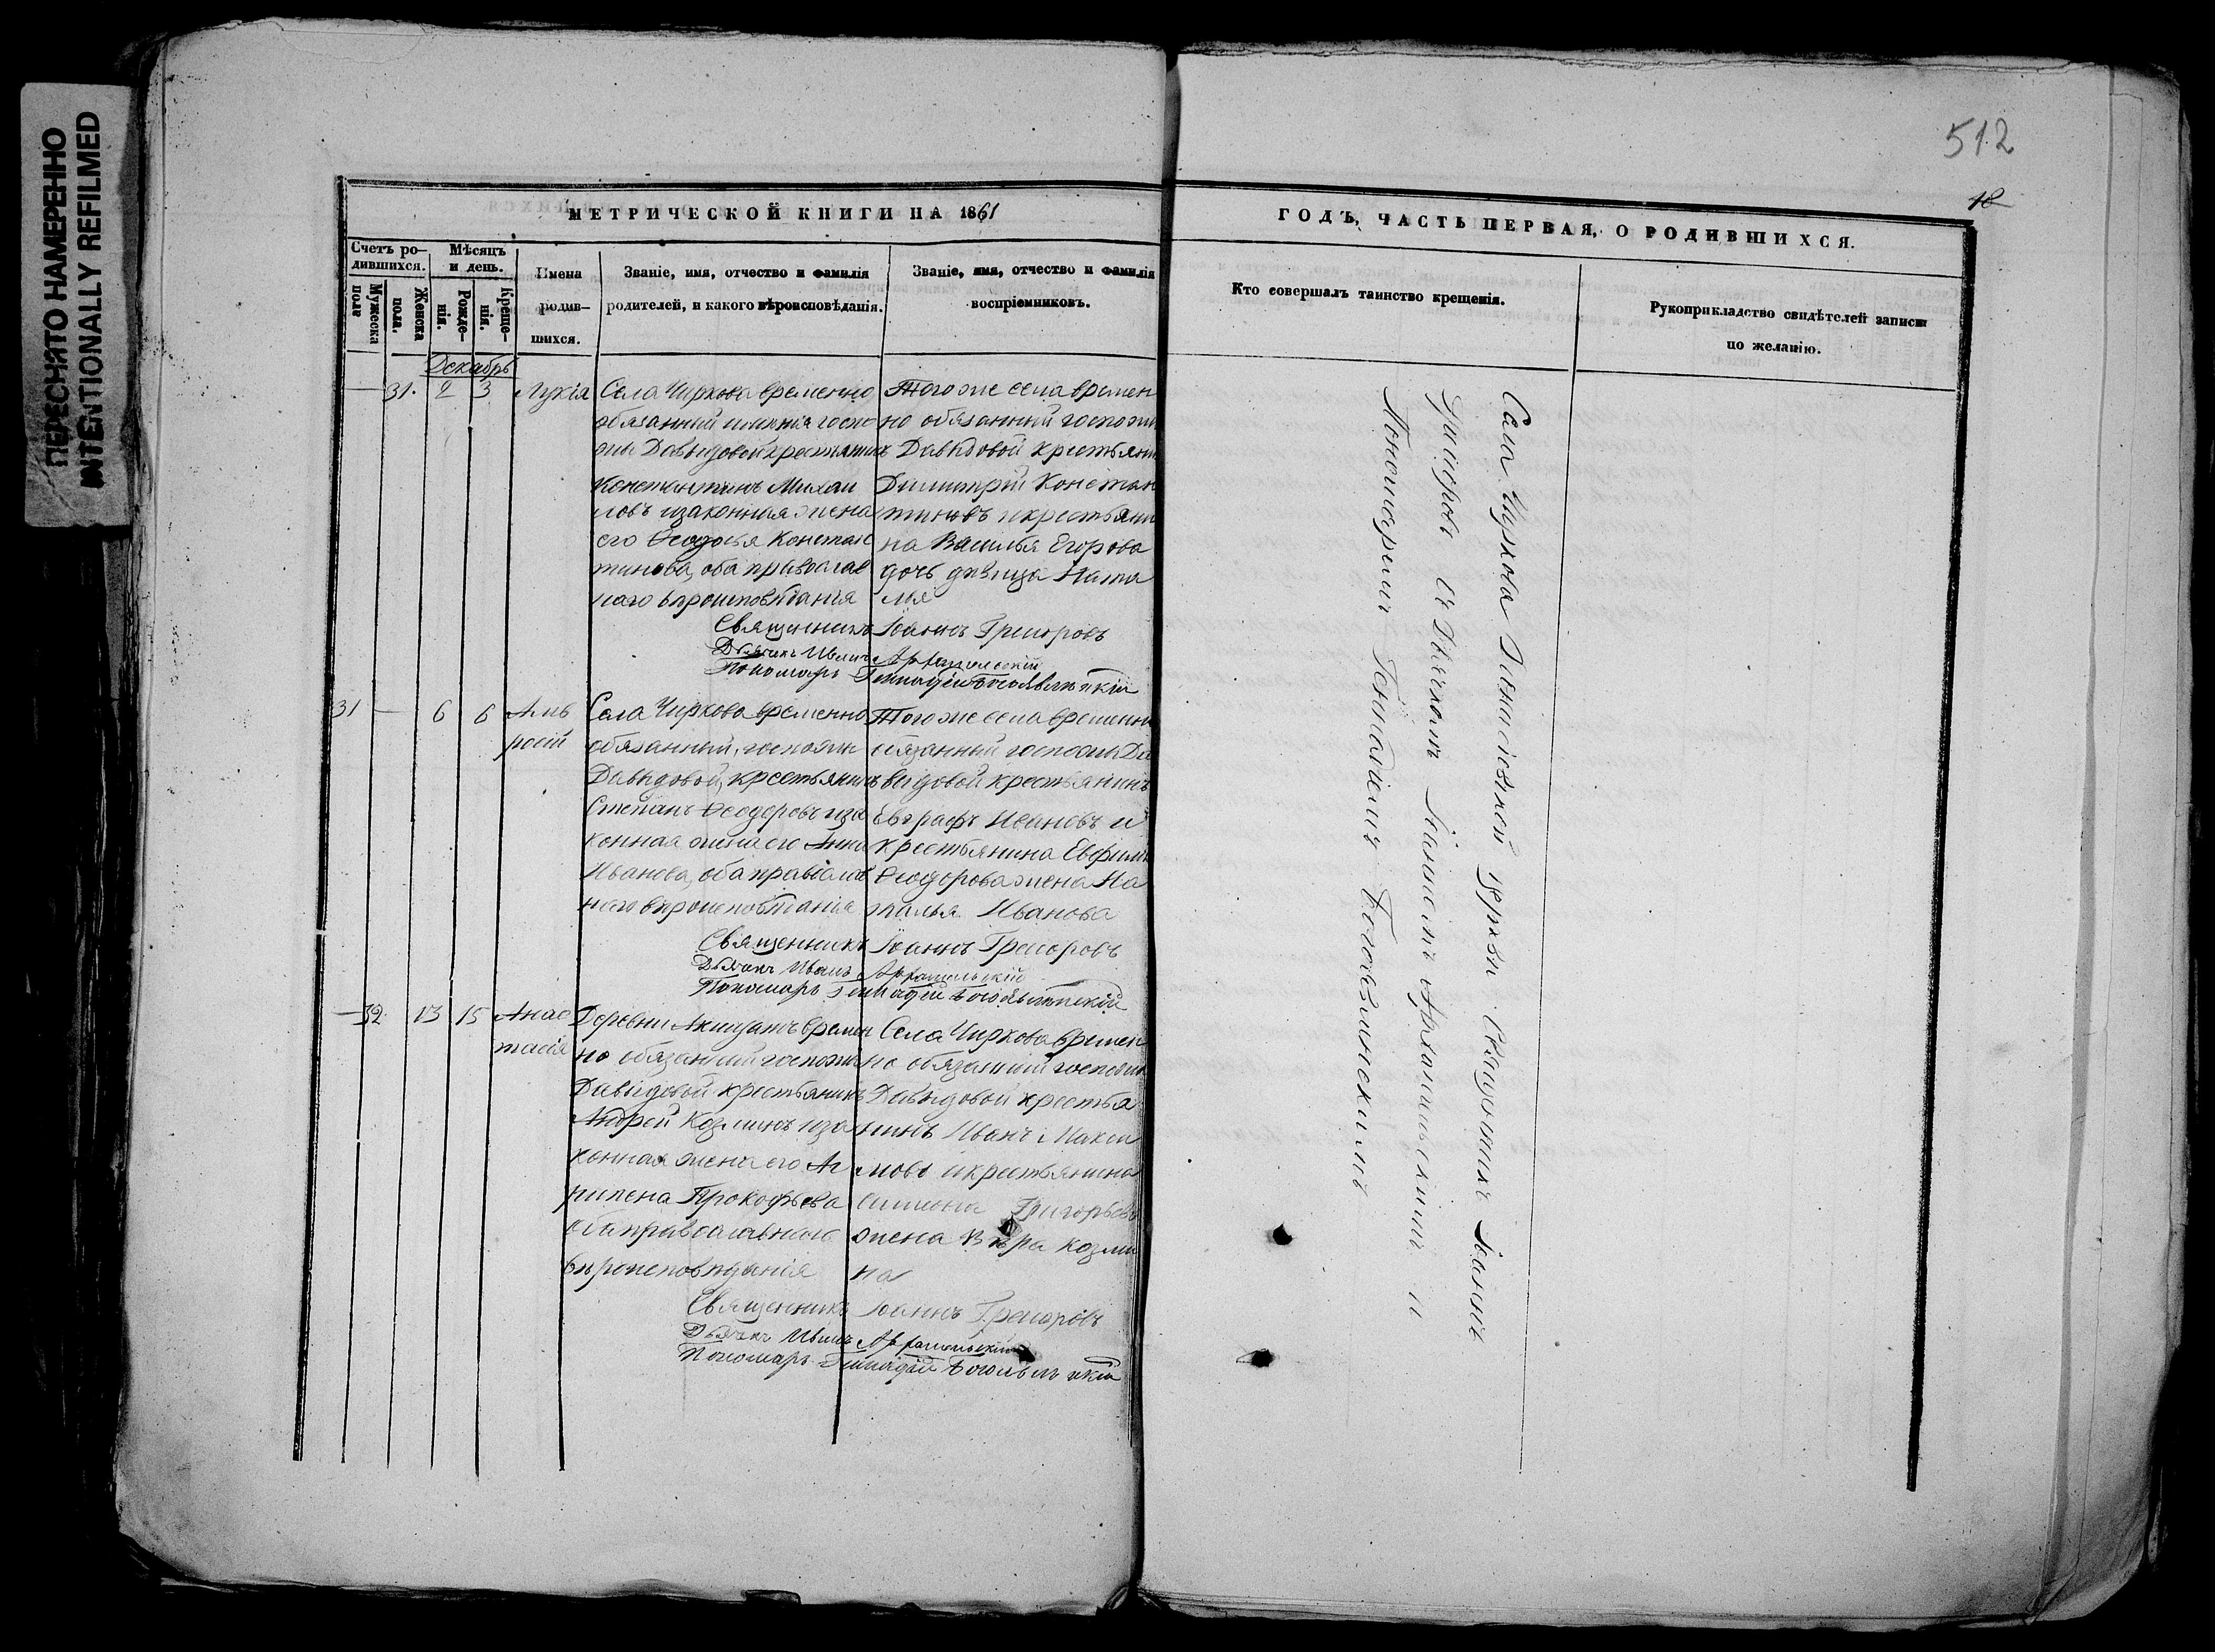 ПЕРЕСНЯТО НАМЕРЕННО
INTENTIONALLY REFILMED
512
18
МЕТРИЧЕСКОЙ КНИГИ НА 1861
ГОДЪ, ЧАСТЬ ПЕРВАЯ, О РОДИВШИХСЯ.
Счетъ ро-
дившихся.
Мужеска
пола
Женска
пола.
Мѣсяцъ
и день.
Рожде-
нія.
Креще-
нія.
Имена
родив-
шихся.
Званіе, имя, отчество и фамилія
родителей, и какого вѣроисповѣданія.
Званіе, имя, отчество и фамилія
воспріемниковъ.
Кто совершалъ таинство крещенія.
Рукоприкладство свидѣтелей записи
по желанію.
Декабрь
— 31. 2 3 Лукія
Села Чиркова временно
обязанный имѣнія госпо
жи Давыдовой крестьянинъ
Константинъ Михаи
ловъ изаконная жена
его Ѳеодосья Констан
тинова, оба православ
наго вѣроисповѣданія
Того же села времен
но обязанный госпожи
Давыдовой крестьянин
Димитрій Констан
тиновъ икрестьяни
на Василья Егорова
дочь дѣвица Ната
лія
Священникъ Іоаннъ Григоровъ
Дьячекъ Иванъ Архангельскій
Пономарь Геннадій Богоявленскій
31 — 6 6 Амв
росій
Села Чиркова временно
обязанный, госпожи
Давыдовой, крестьянинъ
Степанъ Ѳеодоровъ иза
конная жена его Анна
Иванова, оба православ
наго вѣроисповѣданія
Того же села временно
обязанный госпожи Да
выдовой крестьянинъ
Евграфъ Ивановъ и
крестьянина Евфима
Ѳеодорова жена На
талья Иванова
Священникъ Іоаннъ Григоровъ
Дьячекъ Иванъ Архангельскій
Пономарь Геннадій Богоявленскій
— 32. 13 15 Анас
тасія
Деревни временн
но обязанный госпожи
Давыдовой крестьянинъ
Андрей Козминъ иза
конная жена его Аг
рипена Прокофьева
оба православнаго
вѣроисповѣданія
Села Чиркова времен
но обязанный госпожи
Давыдовой крестья
нинъ Иванъ Макси
мовъ икрестьянина
Симиона Григорьева
жена Вѣра Козми
на
Священникъ Іоаннъ Григоровъ
Дьячекъ Иванъ Архангельскій
Пономарь Геннадій Богоявленскій
Села Чиркова церкви Священникъ Іоаннъ
Григоровъ съ Дьячкомъ Іоанномъ Архангельскимъ и
Пономаремъ Геннадіемъ Богоявленскимъ